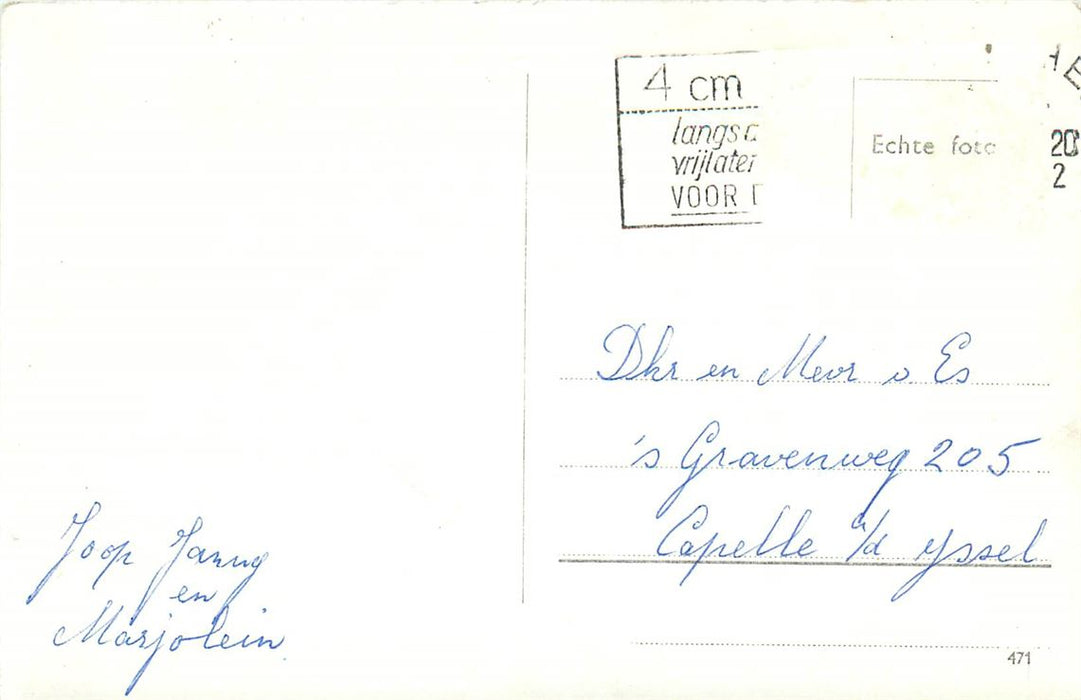 4 cm
langs
vrijlaten
VOOR
Echte foto
20
2
Dhr en Mevr v. Es
's Gravenweg 205
Capelle a/d yssel
Joop Janny
en
Marjolein
471